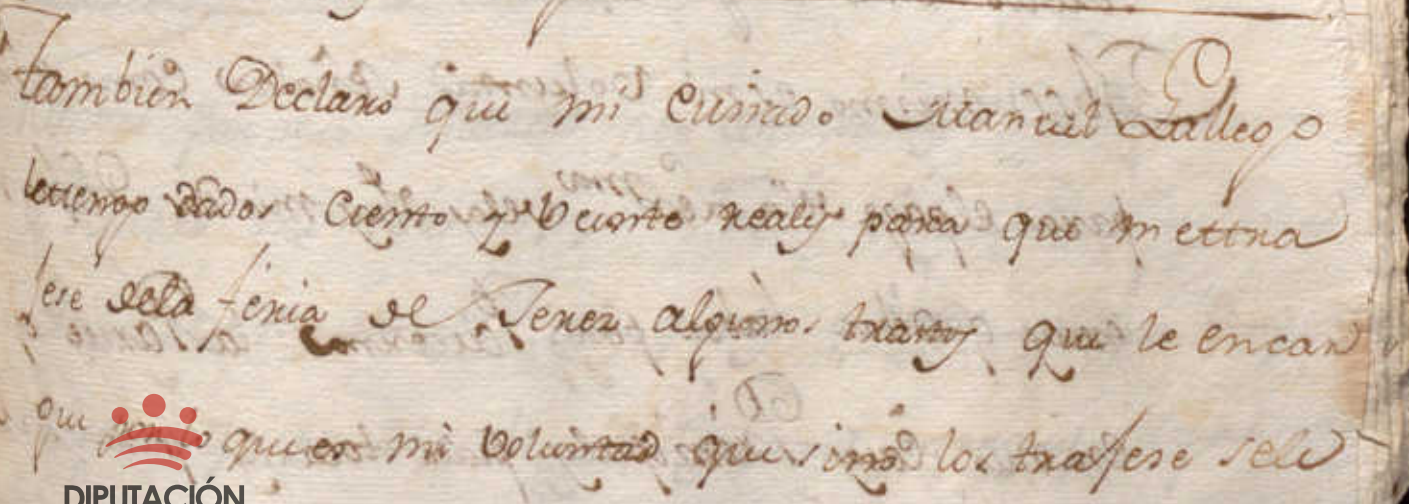 tambien Declaro que mi Cuñado Manuel Gallego
letengo dados Ciento y Veinte reales para que mettra
jese dela feria de Jerez algunos trastes que le encar
que por lo que es mi Voluntad que sino los trajese sele
DIPUTACIÓN